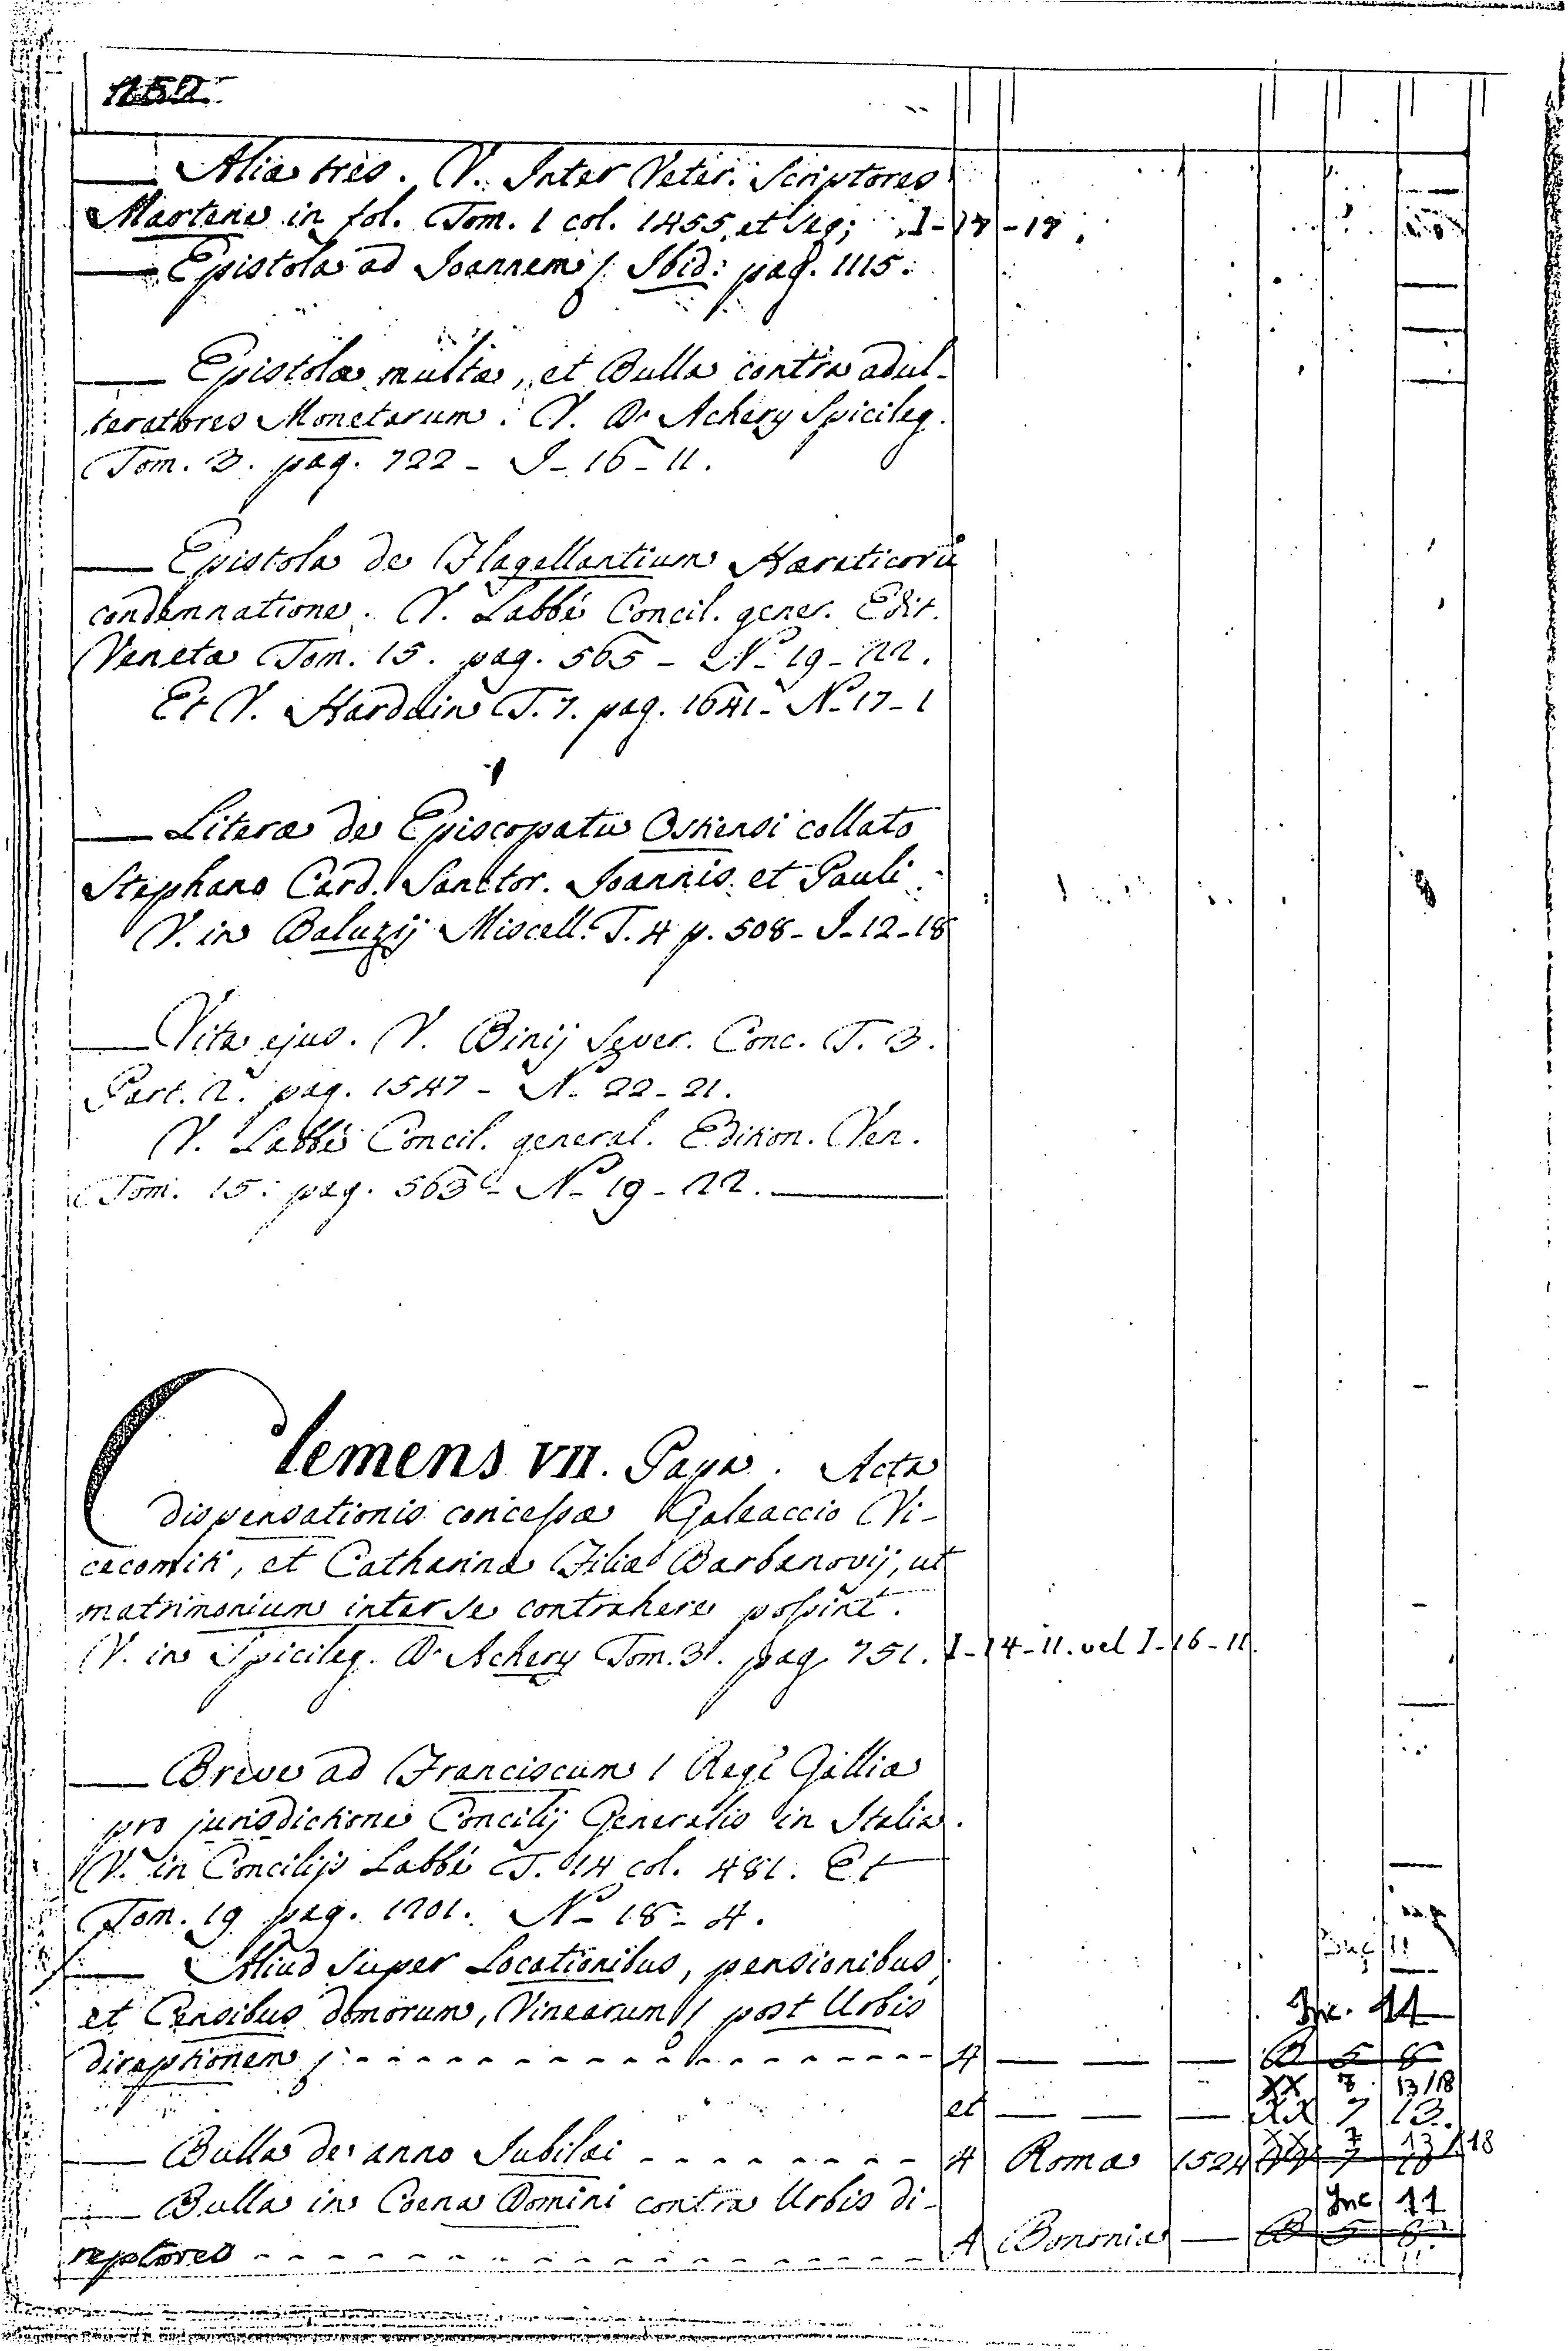 — Aliæ tres. V. Inter Veter. Scriptores
Martene in fol. Tom. 1 col. 1455 et seq; I-18-18.
— Epistola ad Joannem /. Ibid: pag. 1115.
— Epistolæ multæ, et Bulla contra adul-
teratores Monetarum. V. D'Achery Spicileg.
Tom. 3. pag. 722 - I-16-11.
— Epistola de Flagellantium Hæreticorū
condemnatione. V. Labbé Concil. gener. Edit.
Veneta Tom. 15. pag. 565 - N-19-22.
Et V. Harduin T. 7. pag. 1641 - N-17-1
— Literæ de Episcopatu Ostiensi collato
Stephano Card. Sanctor. Joannis et Pauli
V. in Baluzij Miscell. T. 4 p. 508 - I-12-18
— Vita ejus. V. Binij Sever. Conc. T. 3.
Part. 2. pag. 1547 - N-22-21.
V. Labbé Concil. general. Edition. Ven.
Tom. 15. pag. 563 - N-19-22.
Clemens VII. Papa. Acta
dispensationis concessæ Galeaccio Vi-
cecomiti, et Catharinæ Filiæ Barbanovij, ut
matrimonium inter se contrahere possint.
V. in Spicileg. D'Achery Tom. 3. pag. 751. I-14-11. vel I-16-11.
— Breve ad Franciscum 1 Regē Galliæ
pro jurisdictione Concilij Generalis in Italia.
V. in Concilijs Labbé T. 14 col. 481. Et
Tom. 19 pag. 1201. N-18-4.
— Aliud super Locationibus, pensionibus,
et Censibus domorum, Vinearum / post Urbis
direptionem / - - - 4 — — — B 5 6
Inc. 11
XX 7 13/18
et — — — XX 7 13.
— Bulla de anno Jubilæi - - - 4 Romæ 1524 XX 7 13/18
— Bulla in Coena Domini contra Urbis di-
Inc 11
reptores - - - 4 Bononiæ — B 5 6